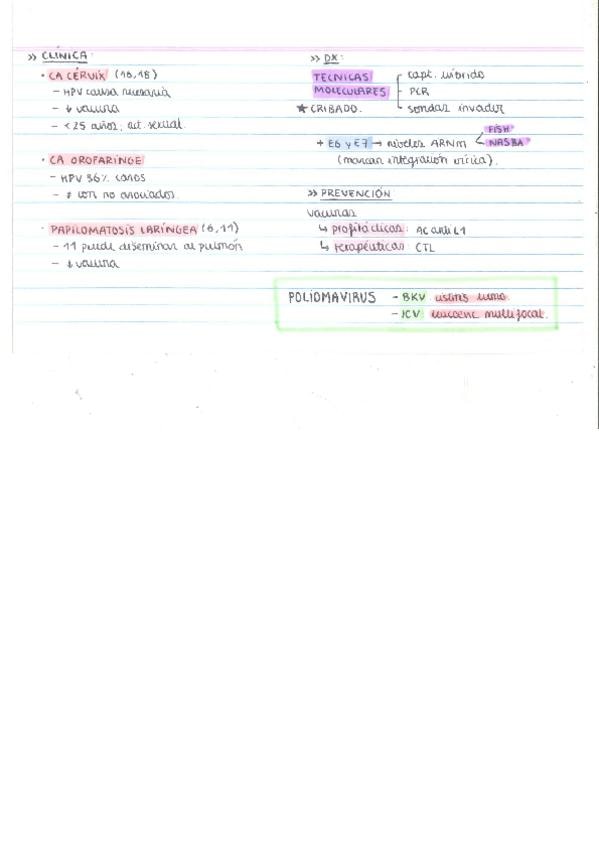 >> CLÍNICA:
· CA CÉRVIX (16,18)
– HPV causa necesaria
– ↓ vacuna
– < 25 años; act. sexual.
· CA OROFARINGE
– HPV 36% casos
– ≠ con no asociados.
· PAPILOMATOSIS LARÍNGEA (6,11)
– 11 puede diseminar al pulmón
– ↓ vacuna
>> DX:
TECNICAS MOLECULARES
capt. híbrido
PCR
sondas invader
★ CRIBADO.
+ E6 y E7 → niveles ARNm
FISH
NASBA
(marcan integración vírica).
>> PREVENCIÓN
vacunas
↳ profilácticas: AC anti L1
↳ terapéuticas: CTL
POLIOMAVIRUS – BKV
– JCV leucoenc multifocal.